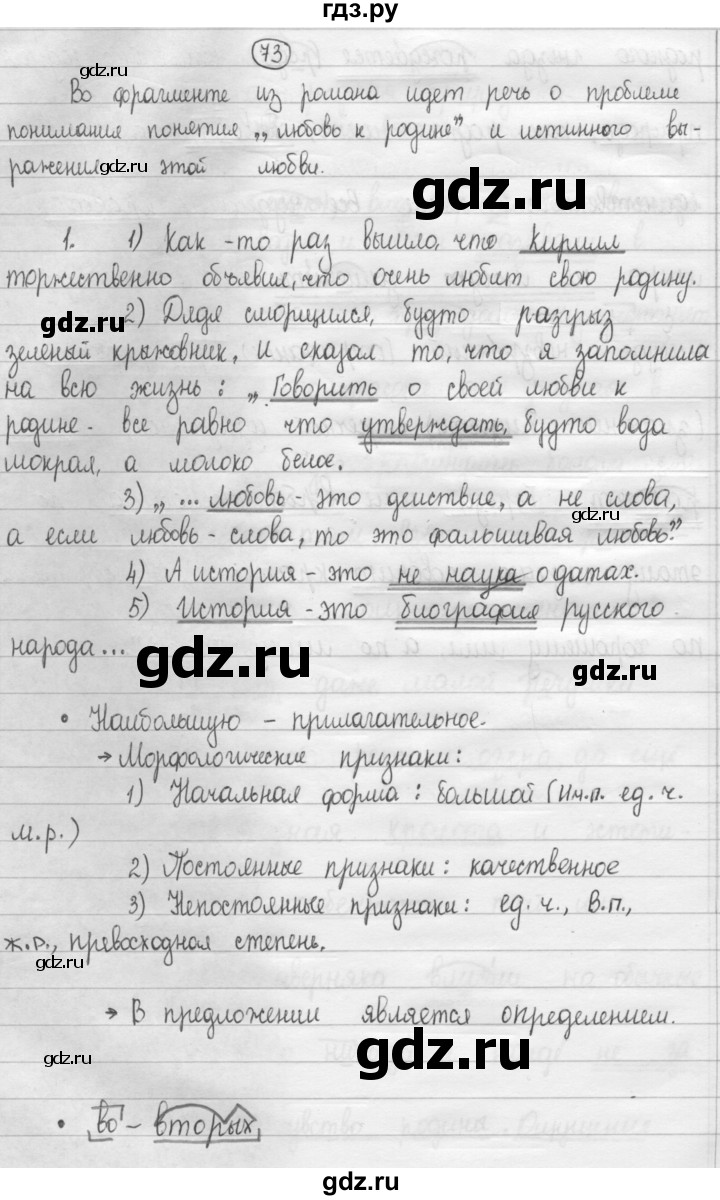 гдз.ру
73
Во фрагменте из романа идет речь о проблеме
понимания понятия „любовь к родине" и истинного вы-
ражения этой любви.
1. 1) Как-то раз вышло, что Кирилл
торжественно объявил, что очень любит свою родину.
2) Дядя сморщился, будто разгрыз
зелёный крыжовник, и сказал то, что я запомнила
на всю жизнь: „Говорить о своей любви к
родине - все равно что утверждать, будто вода
мокрая, а молоко белое.
3) „... Любовь - это действие, а не слова,
а если любовь - слова, то это фальшивая любовь."
4) А история - это не наука о датах.
5) История - это биография русского
народа...
• Наибольшую - прилагательное.
→ Морфологические признаки:
1) Начальная форма: большой (Им.п. ед. ч.
м.р.)
2) Постоянные признаки: качественное
3) Непостоянные признаки: ед. ч., В.п.,
ж.р., превосходная степень.
→ В предложении является определением.
• во - вторых,
gdz.ru
gdz.ru
gdz.ru
gdz.ru
gdz.ru
gdz.ru
gdz.ru
gdz.ru
gdz.ru
gdz.ru
gdz.ru
gdz.ru